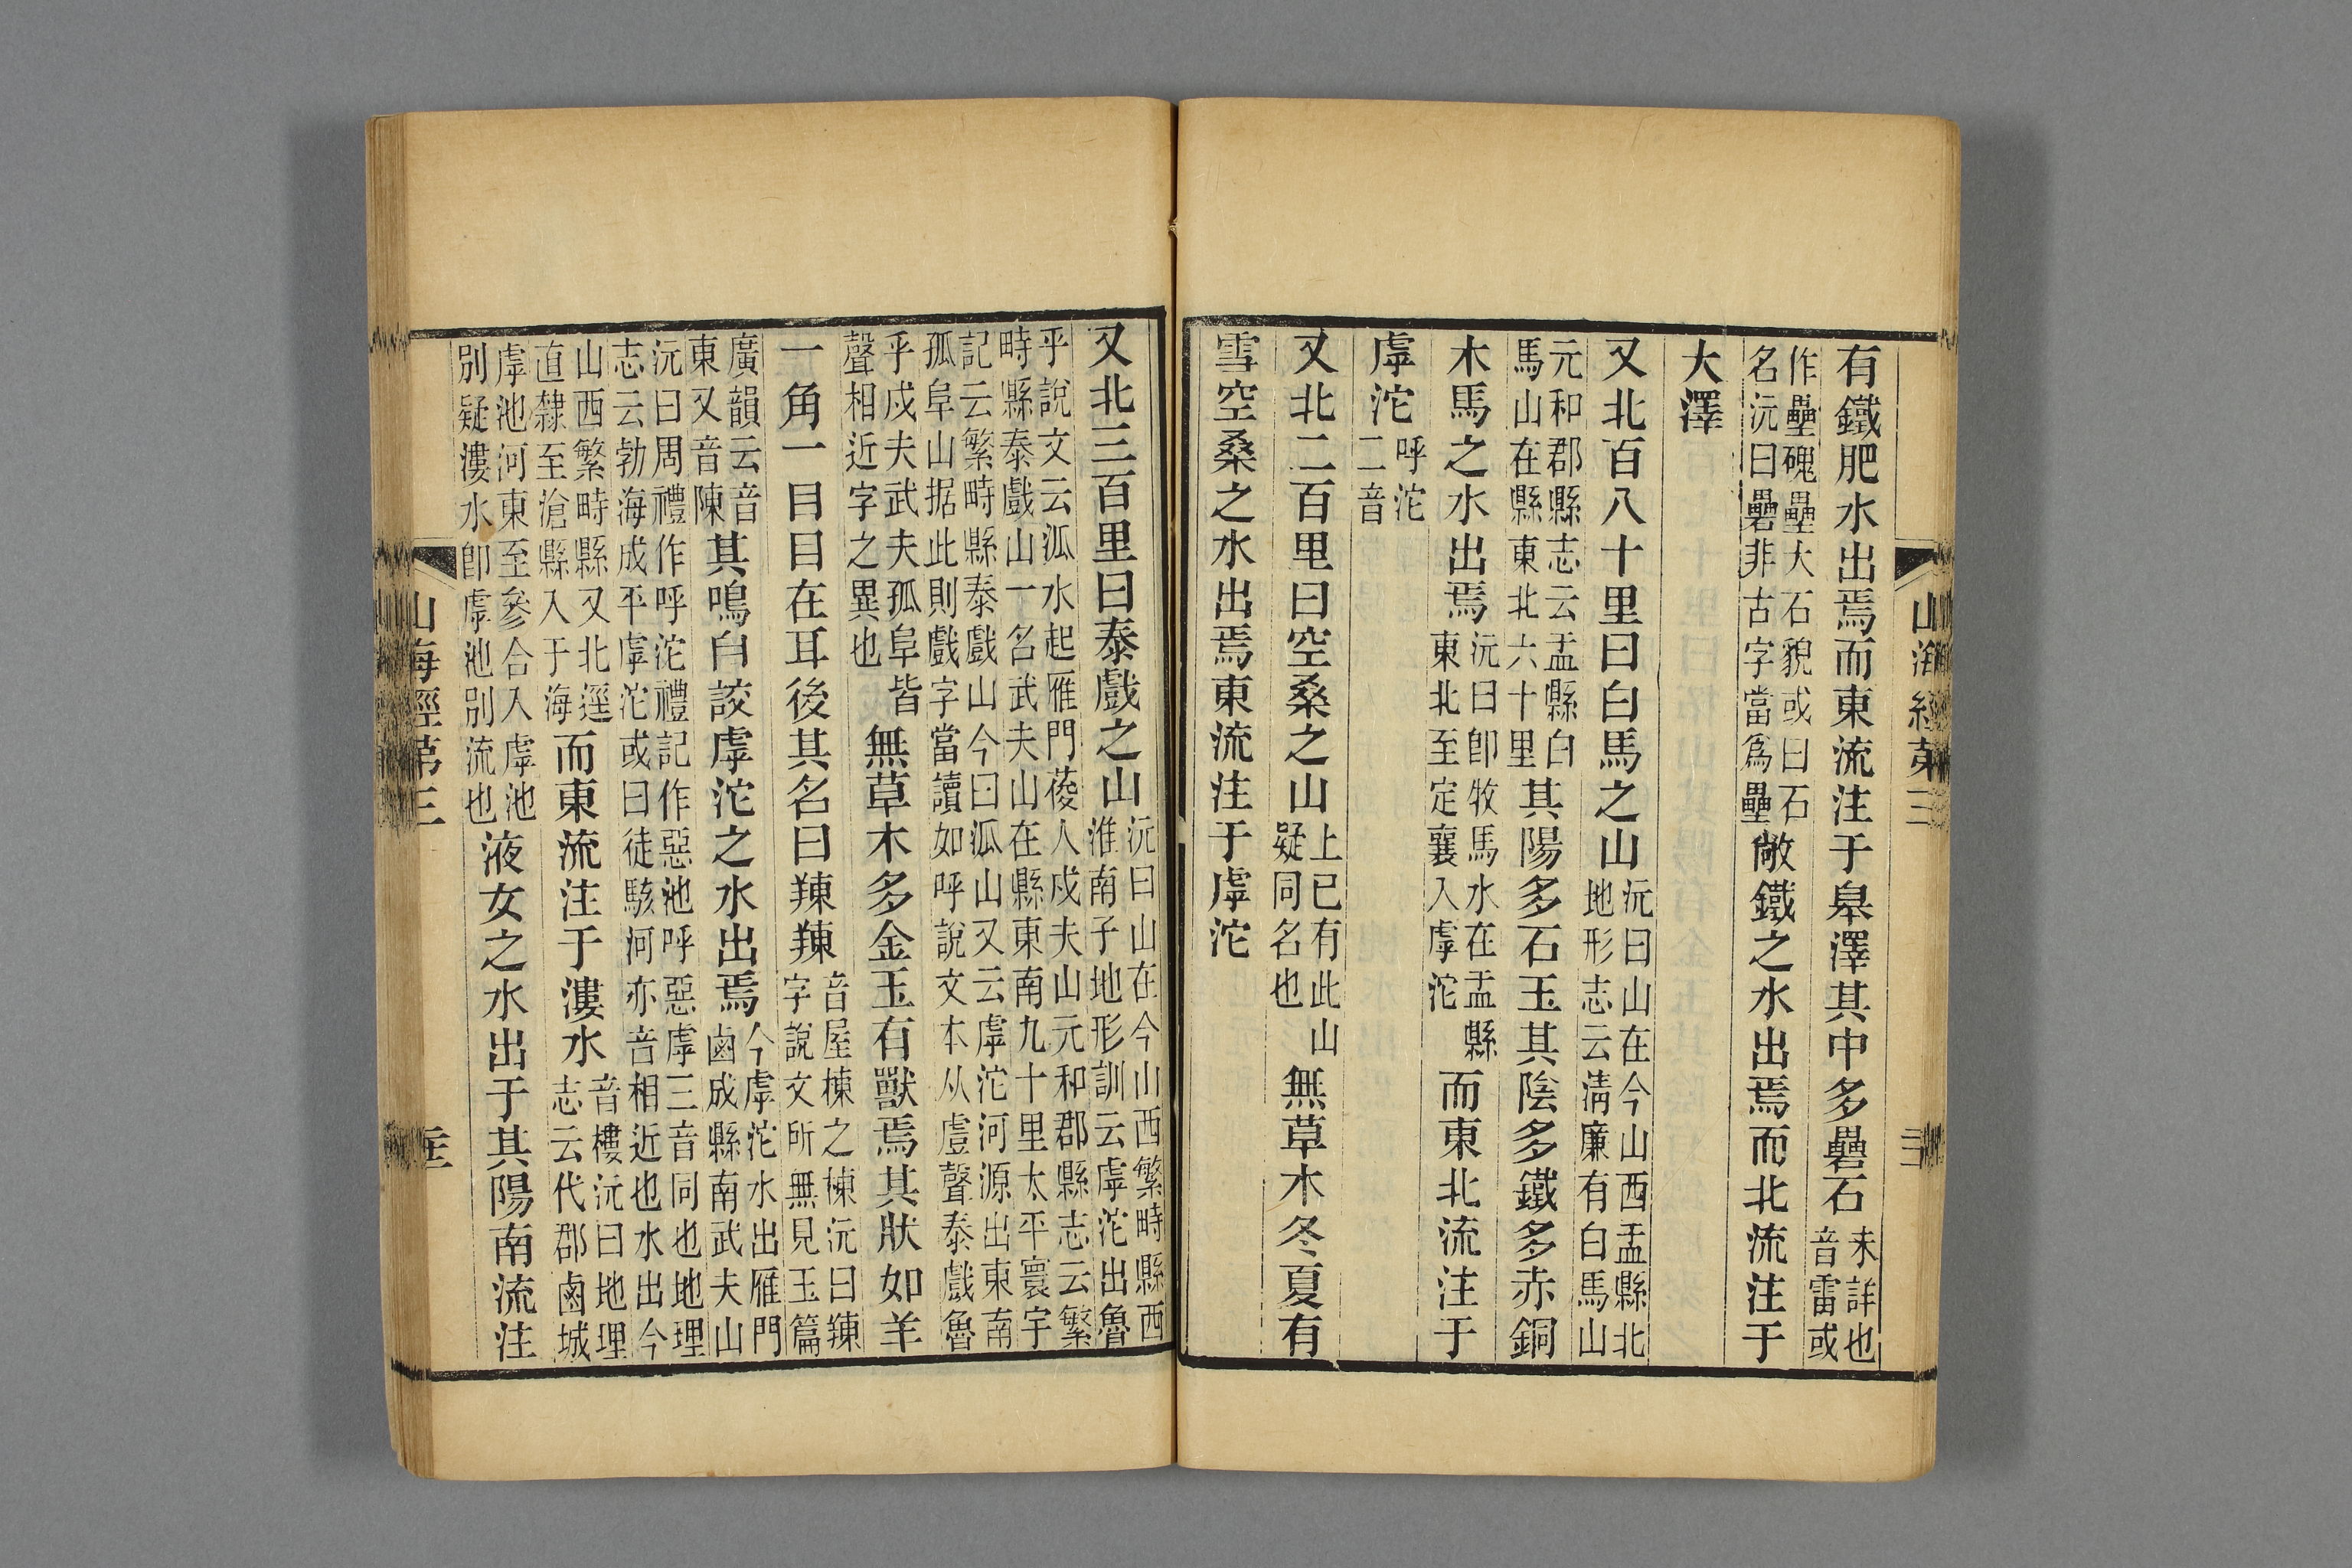 山海經第三
有鐵肥水出焉而東流注于臯澤其中多礨石未詳也音雷或
作壘磈壘大石貌或曰石名沅曰礨非古字當爲壘敞鐵之水出焉而北流注于
大澤
又北百八十里曰白馬之山沅曰山在今山西盂縣北地形志云淸廉有白馬山
元和郡縣志云盂縣白馬山在縣東北六十里其陽多石玉其陰多鐵多赤銅
木馬之水出焉沅曰卽牧馬水在盂縣東北至定襄入虖沱而東北流注于
虖沱呼沱二音
又北二百里曰空桑之山上已有此山疑同名也無草木冬夏有
雪空桑之水出焉東流注于虖沱
又北三百里曰泰戲之山沅曰山在今山西繁畤縣西淮南子地形訓云虖沱出魯
乎說文云泒水起雁門葰人戍夫山元和郡縣志云繁畤縣泰戲山一名武夫山在縣東南九十里太平寰宇
記云繁畤縣泰戲山今曰泒山又云虖沱河源出東南孤阜山据此則戲字當讀如呼說文本从虘聲泰戲魯
乎戍夫武夫孤阜皆聲相近字之異也無草木多金玉有獸焉其狀如羊
一角一目目在耳後其名曰䍶䍶音屋棟之棟沅曰䍶字說文所無見玉篇
廣韻云音東又音陳其鳴自詨虖沱之水出焉今虖沱水出雁門鹵成縣南武夫山
沅曰周禮作呼沱禮記作惡池呼惡虖三音同也地理志云勃海成平虖沱或曰徒駭河亦音相近也水出今
山西繁畤縣又北逕直隸至滄縣入于海而東流注于漊水音樓沅曰地理志云代郡鹵城
虖池河東至參合入虖池別疑漊水卽虖池別流也液女之水出于其陽南流注
山海經第三